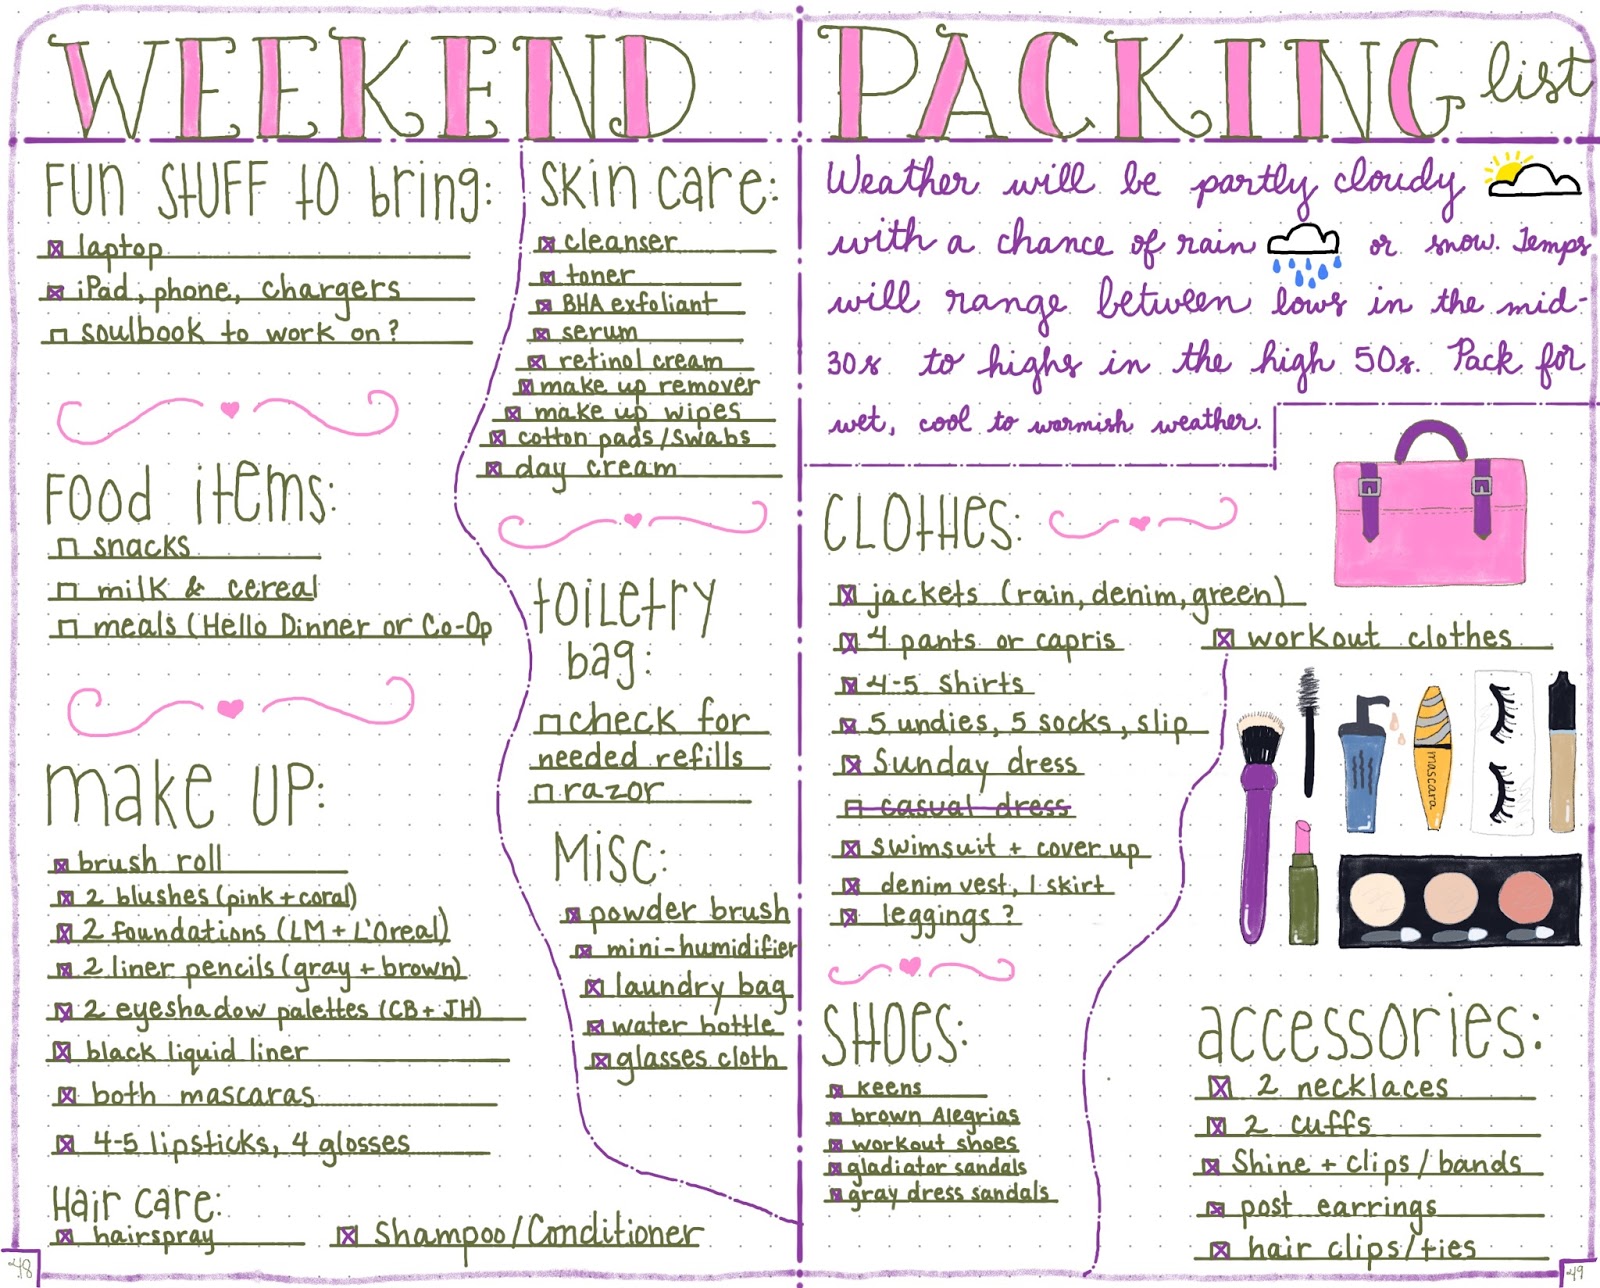 WEEKEND PACKING list
Fun Stuff to bring:
laptop
iPad, phone, chargers
soulbook to work on?
Food items:
snacks
milk & cereal
meals (Hello Dinner or Co-Op
make up:
brush roll
2 blushes (pink + coral)
2 foundations (LM + L'Oreal)
2 liner pencils (gray + brown)
2 eyeshadow palettes (CB + JH)
black liquid liner
both mascaras
4-5 lipsticks, 4 glosses
Hair care:
hairspray
Shampoo/Conditioner
48
skin care:
cleanser
toner
BHA exfoliant
serum
retinol cream
make up remover
make up wipes
cotton pads/swabs
day cream
toiletry
bag:
check for
needed refills
razor
Misc:
powder brush
mini-humidifier
laundry bag
water bottle
glasses cloth
Weather will be partly cloudy
with a chance of rain or snow. Temps
will range between lows in the mid-
30s to highs in the high 50s. Pack for
wet, cool to warmish weather.
CLOTHES:
jackets (rain, denim, green)
4 pants or capris
4-5 shirts
5 undies, 5 socks, slip
Sunday dress
casual dress
swimsuit + cover up
denim vest, 1 skirt
leggings?
workout clothes
mascara
SHOES:
keens
brown Alegrias
workout shoes
gladiator sandals
gray dress sandals
accessories:
2 necklaces
2 cuffs
Shine + clips/bands
post earrings
hair clips/ties
49